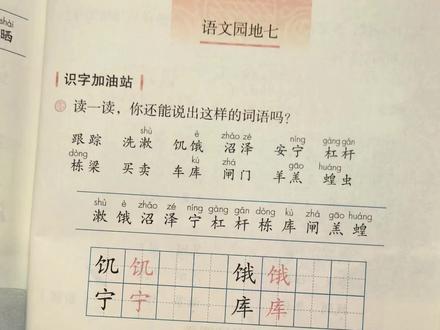 shài
晒
语文园地七
识字加油站
读一读，你还能说出这样的词语吗？
shù è zhǎo zé níng gàng gǎn
跟踪 洗漱 饥饿 沼泽 安宁 杠杆
dòng kù zhá gāo huáng
栋梁 买卖 车库 闸门 羊羔 蝗虫
shù è zhǎo zé níng gàng gǎn dòng kù zhá gāo huáng
漱 饿 沼 泽 宁 杠 杆 栋 库 闸 羔 蝗
饥 饥 饿 饿
宁 宁 库 库